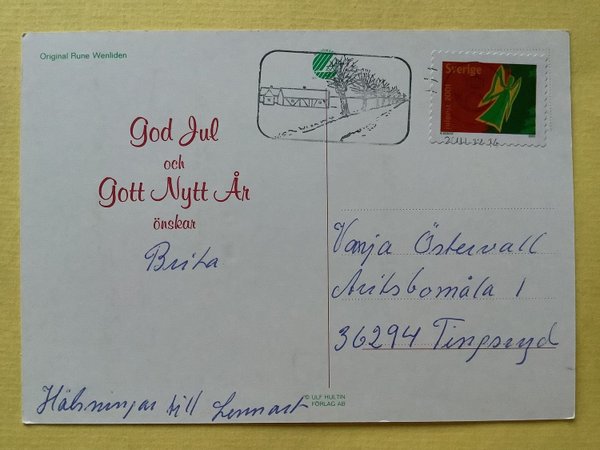 Original Rune Wenliden
Sverige
Julpost 2001
2001 12 16
God Jul
och
Gott Nytt År
önskar
Brita
Vanja Östervall
Aritsbomåla 1
36294 Tingsryd
Hälsningar till Lennart
© ULF HULTIN
FÖRLAG AB